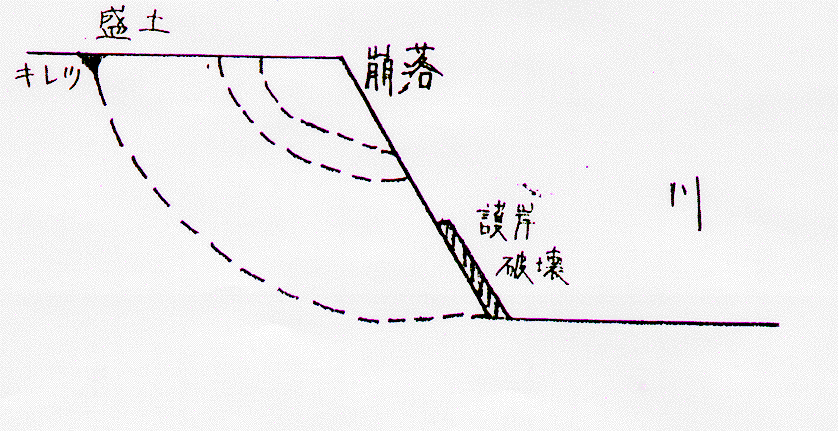 盛土
キレツ
崩落
護岸
破壊
川